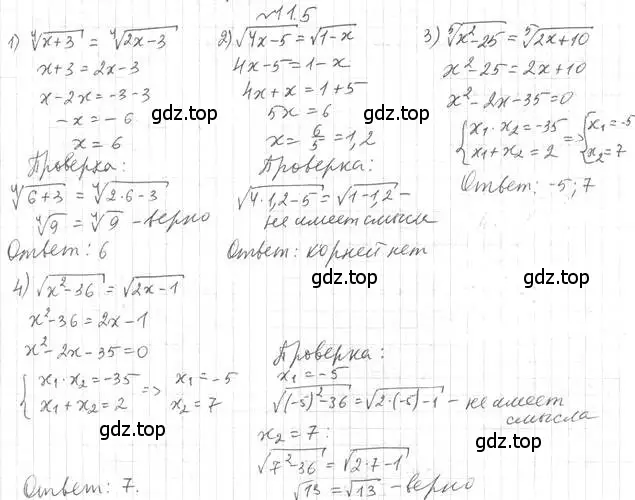 №11.5
1) ∜(x+3) = ∜(2x-3)
x+3 = 2x-3
x-2x = -3-3
-x = -6
x = 6
Проверка:
∜(6+3) = ∜(2·6-3)
∜9 = ∜9 - верно
Ответ: 6
2) √(4x-5) = √(1-x)
4x-5 = 1-x
4x+x = 1+5
5x = 6
x = 6/5 = 1,2
Проверка:
√(4·1,2-5) = √(1-1,2) -
не имеет смысла
Ответ: корней нет
3) ⁵√(x²-25) = ⁵√(2x+10)
x²-25 = 2x+10
x²-2x-35=0
{x₁·x₂ = -35 => {x₁ = -5
{x₁+x₂ = 2 {x₂ = 7
Ответ: -5; 7
4) √(x²-36) = √(2x-1)
x²-36 = 2x-1
x²-2x-35=0
{x₁·x₂ = -35 => x₁ = -5
{x₁+x₂ = 2 x₂ = 7
Проверка:
x₁ = -5
√((-5)²-36) = √(2·(-5)-1) - не имеет
смысла
x₂ = 7:
√(7²-36) = √(2·7-1)
√13 = √13 - верно
Ответ: 7.
gdz.top
gdz.top
gdz.top
gdz.top
gdz.top
gdz.top
gdz.top
gdz.top